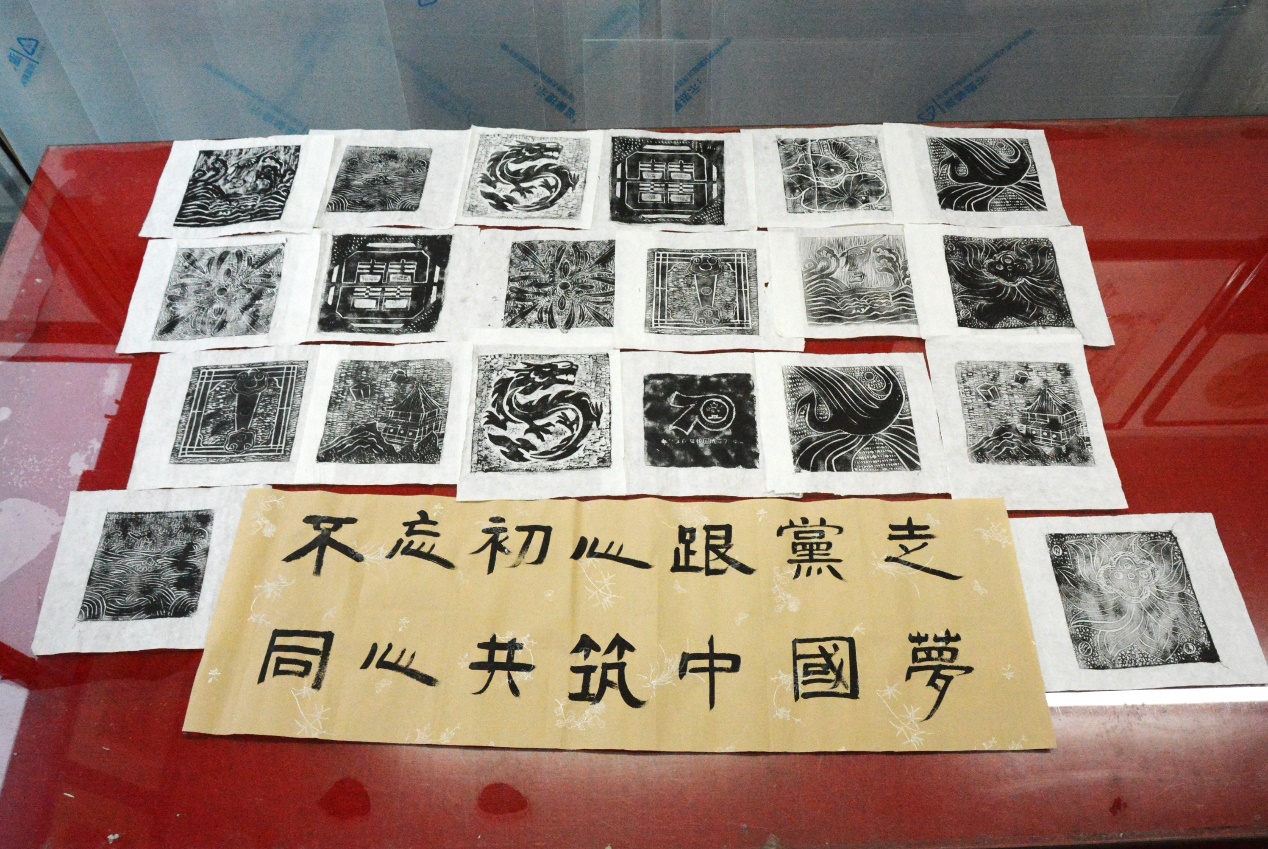 70
不忘初心跟黨走
同心共筑中國夢